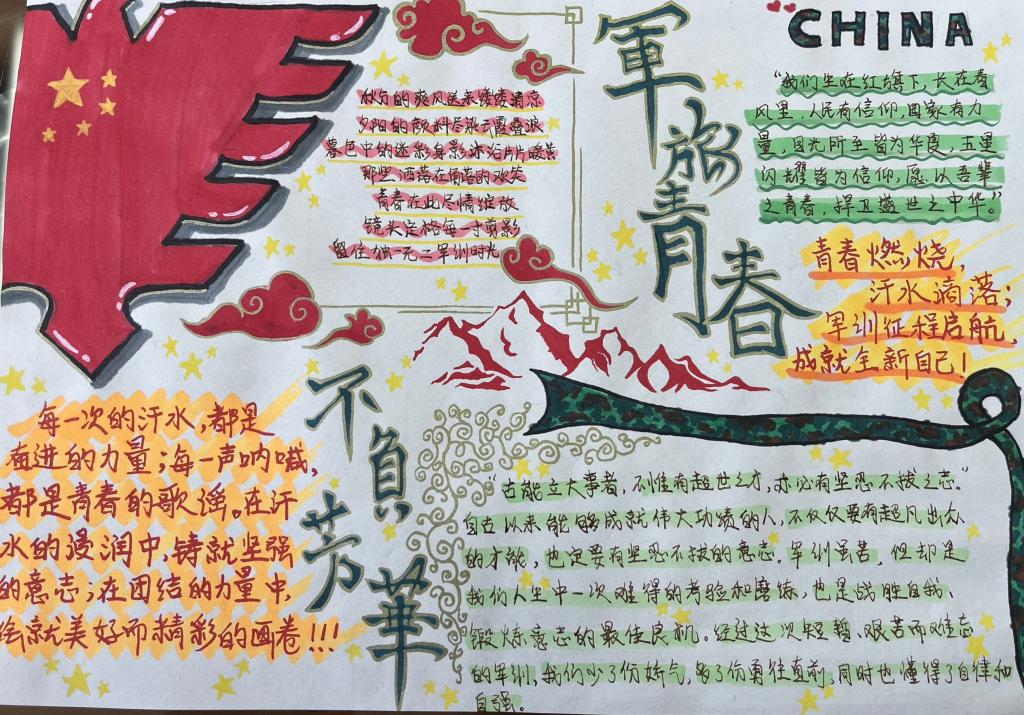 CHINA
軍旅青春
不負芳華
秋分的爽风送来缕缕清凉
夕阳的颜料尽染云霞叠浪
暮色中的迷彩身影沐浴片片暖黄
那些洒落在角落的欢笑
青春在此尽情绽放
镜头定格每一寸剪影
留住独一无二军训时光
“我们生在红旗下,长在春
风里,人民有信仰,国家有力
量,目光所至皆为华夏,五星
闪耀皆为信仰,愿以吾辈
之青春,捍卫盛世之中华。”
青春燃烧,
汗水滴落;
军训征程启航,
成就全新自己!
每一次的汗水,都是
奋进的力量;每一声呐喊,
都是青春的歌谣。在汗
水的浸润中,铸就坚强
的意志;在团结的力量中,
绘就美好而精彩的画卷!!!
“古能立大事者,不惟有超世之才,亦必有坚忍不拔之志。”
自古以来能够成就伟大功绩的人,不仅仅要有超凡出众
的才能,也定要有坚忍不拔的意志。军训虽苦,但却是
我们人生中一次难得的考验和磨练,也是战胜自我、
锻炼意志的最佳良机。经过这次短暂、艰苦而难忘
的军训,我们少了份娇气,多了份勇往直前,同时也懂得了自律和
自强。